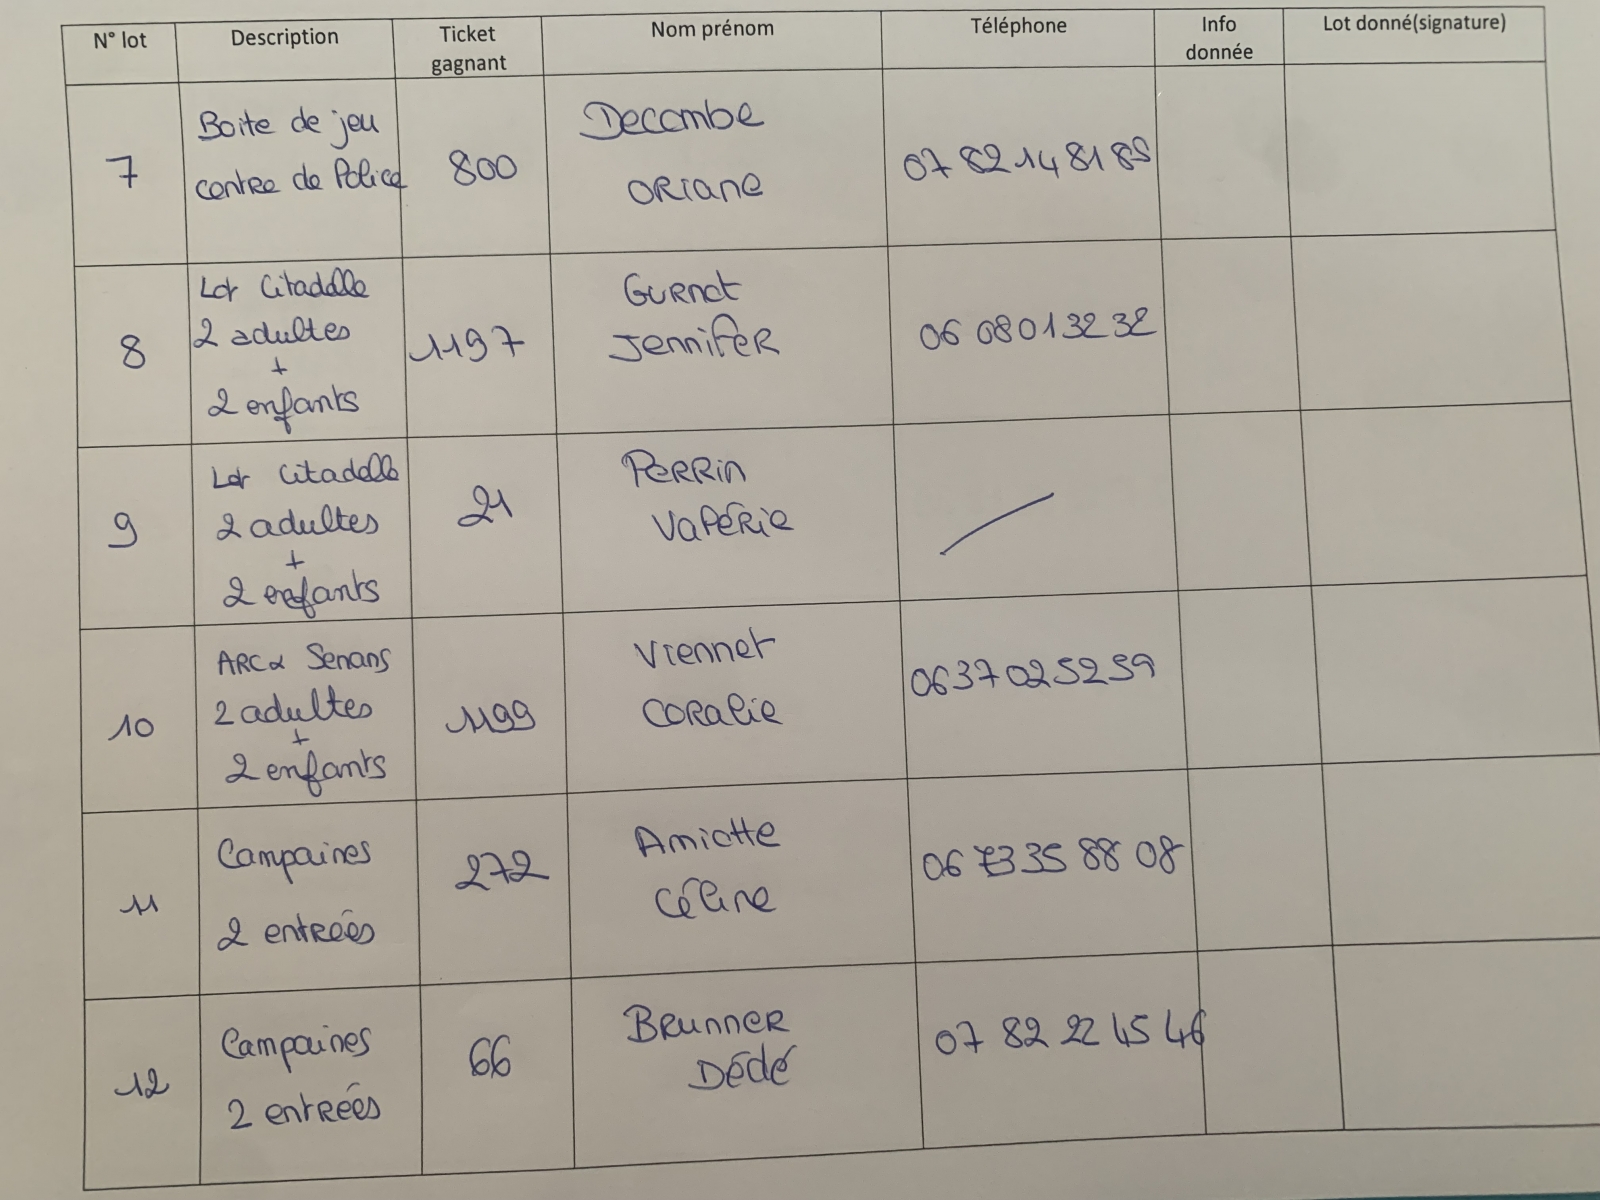 N° lot
Description
Ticket
gagnant
Nom prénom
Téléphone
Info
donnée
Lot donné(signature)
7
Boite de jeu
centre de Police
800
Decombe
Oriane
07 82 14 81 89
8
Lot Citadelle
2 adultes
+
2 enfants
1197
Gurnot
Jennifer
06 08 01 32 32
9
Lot Citadelle
2 adultes
+
2 enfants
21
Perrin
Valérie
10
ARC & Senans
2 adultes
+
2 enfants
1199
Viennet
Coralie
06 37 02 52 59
11
Campaines
2 entrées
272
Amiotte
Céline
06 73 35 88 08
12
Campaines
2 entrées
66
Brunner
Dédé
07 82 22 45 46